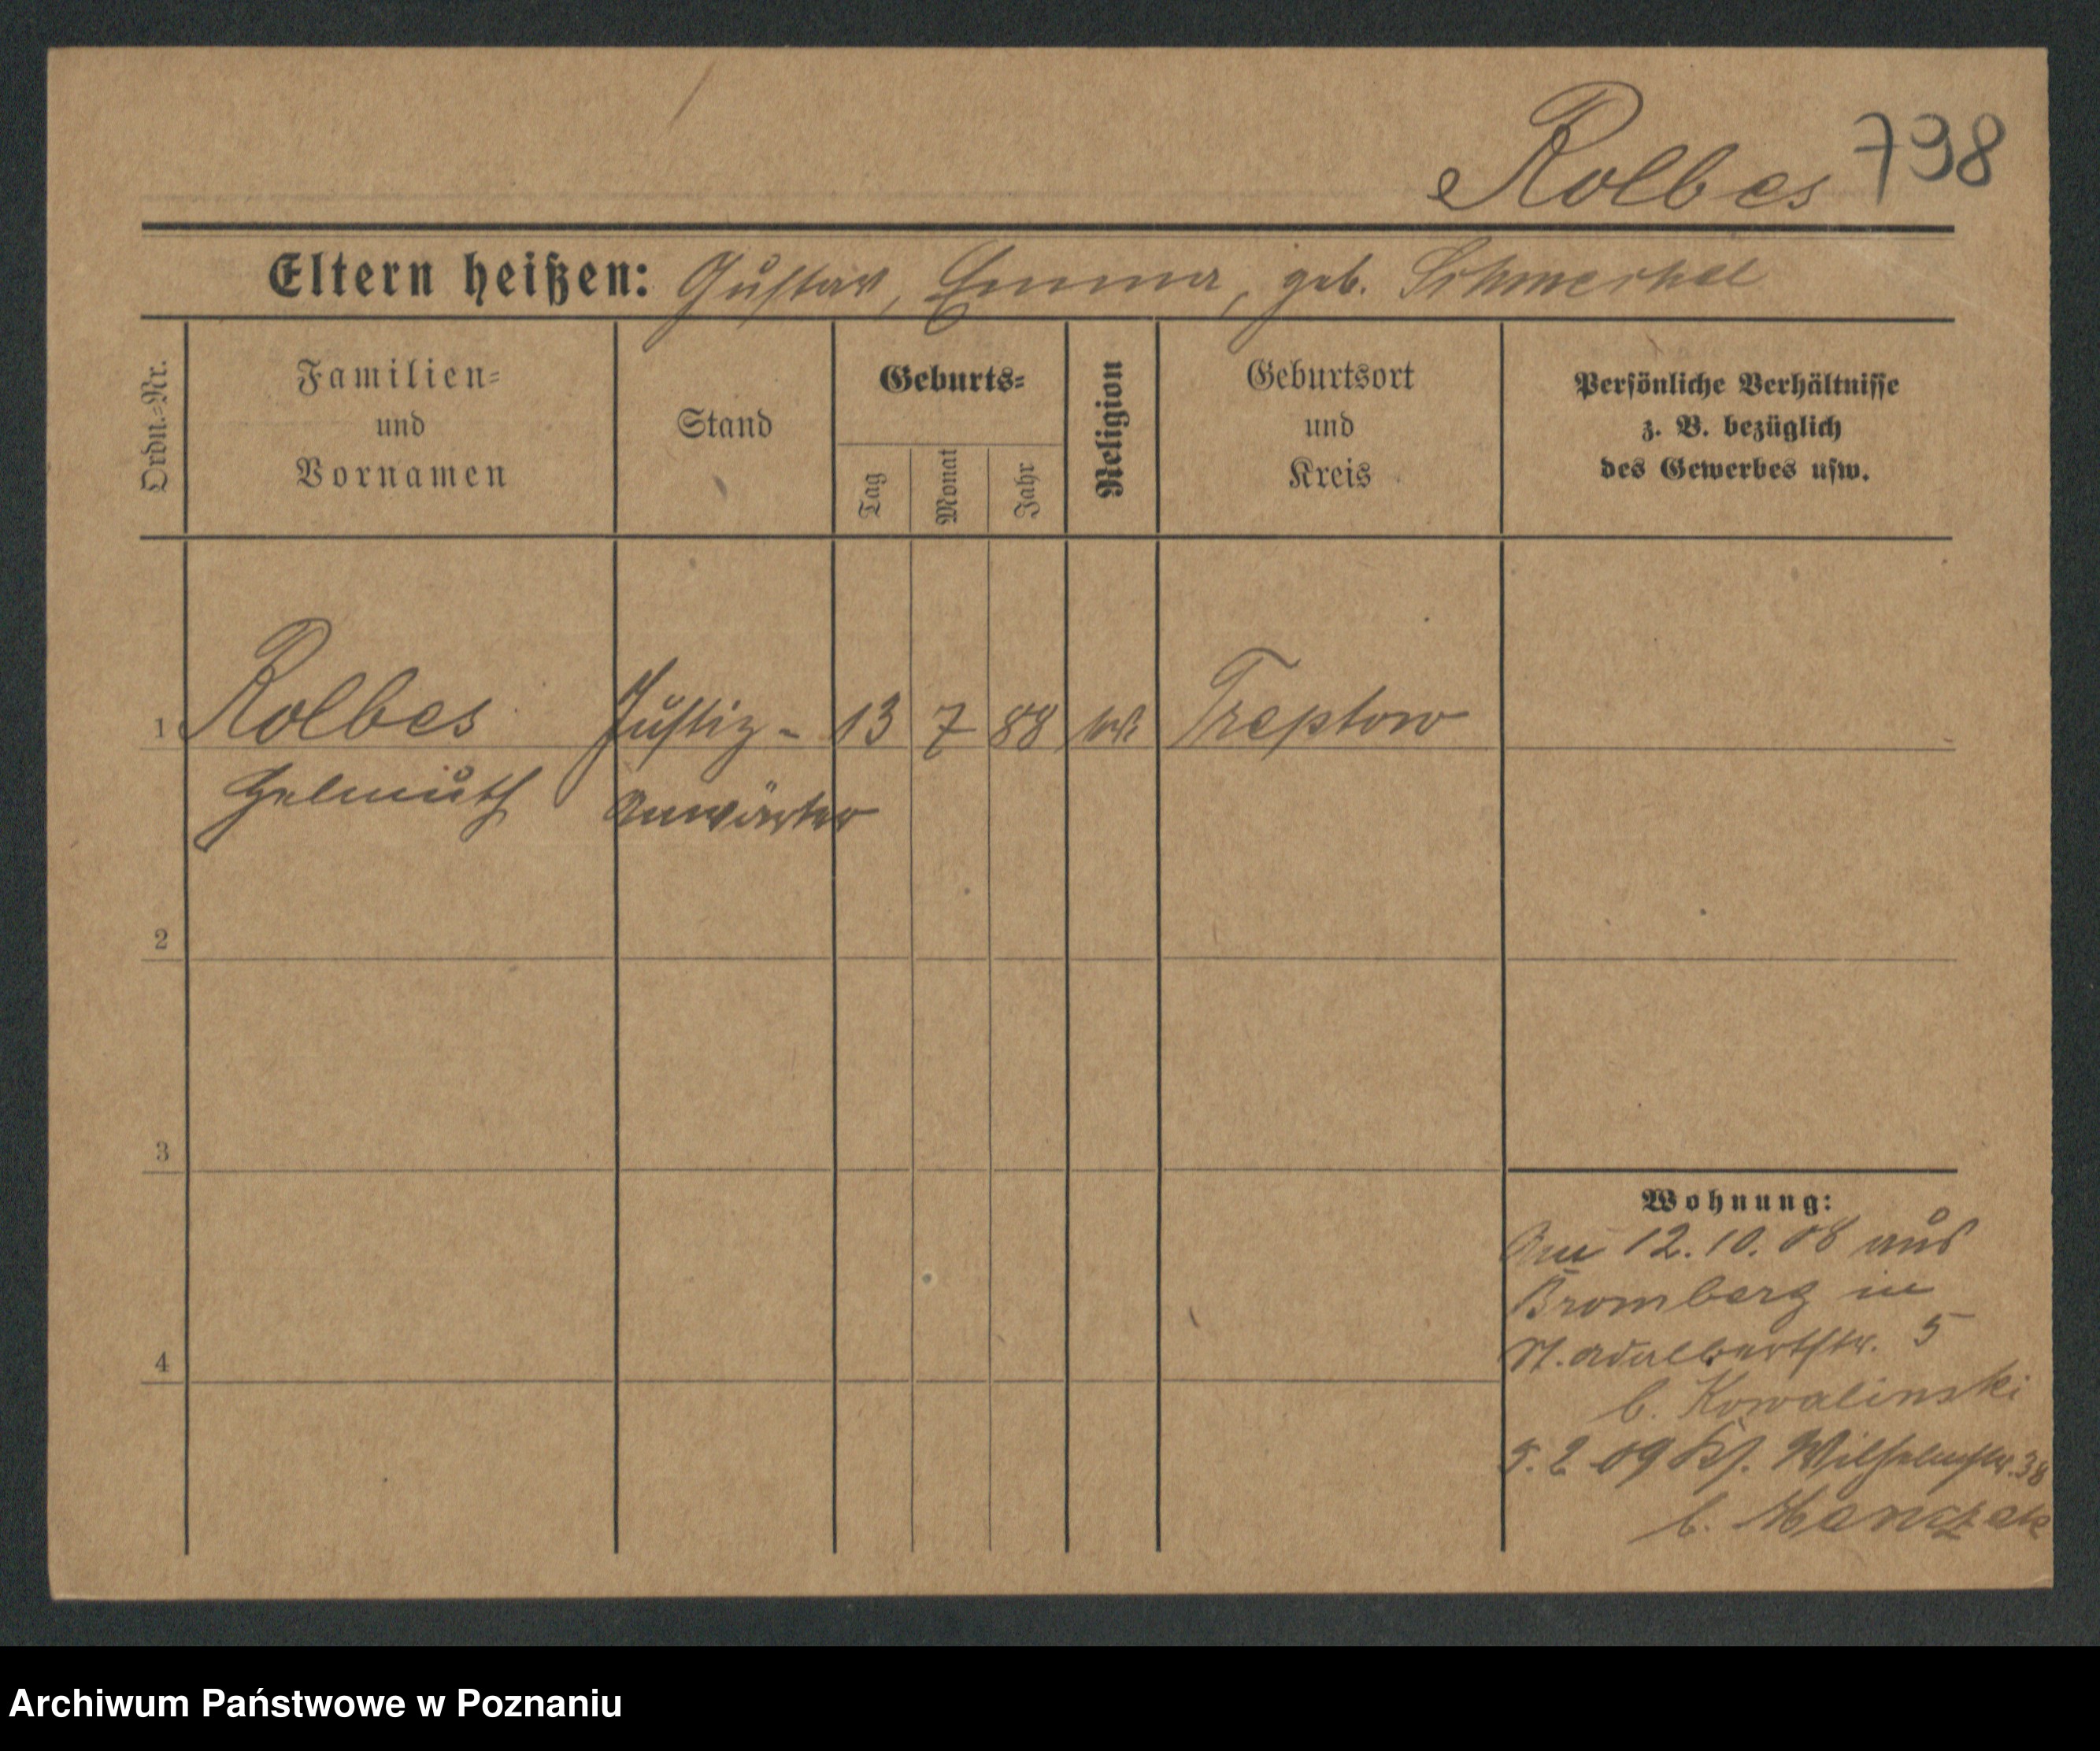 Rolbes 798
Eltern heißen: Gustav, Emma, geb. Schmerkel
Ordn.-Nr.
Familien-
und
Vornamen
Stand
Geburts-
Tag
Monat
Jahr
Religion
Geburtsort
und
Kreis
Persönliche Verhältnisse
z. B. bezüglich
des Gewerbes usw.
1 Rolbes Justiz- 13 7 88 Treptow
Helmuth Anwärter
2
3
4
Wohnung:
Am 12.10.08 aus
Bromberg in
St. Adalbertstr. 5
b. Kowalinski
5.2.09 Wilhelmstr. 38
b.